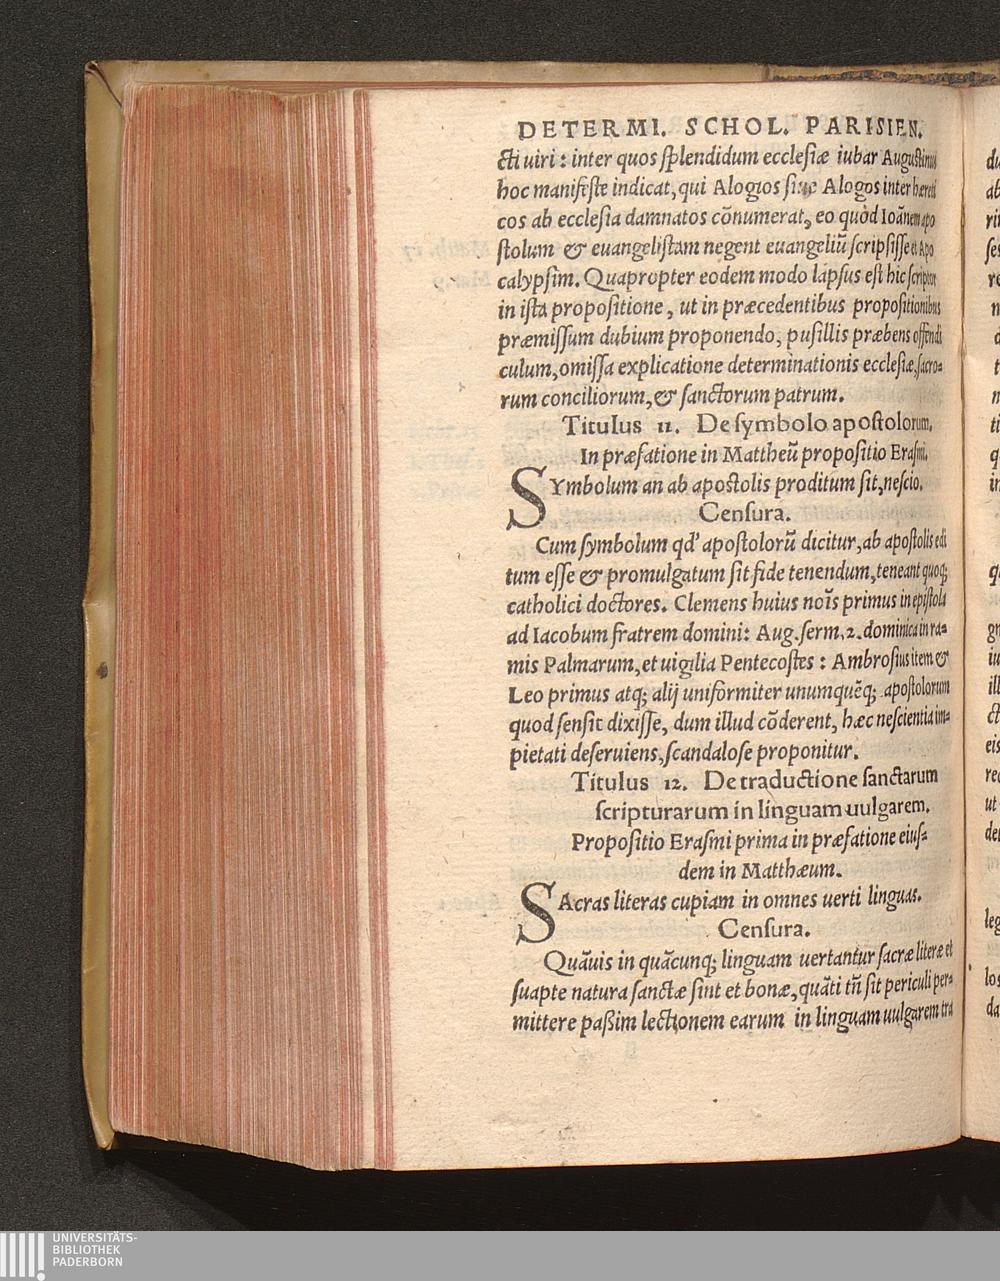 DETERMI. SCHOL. PARISIEN.
cti uiri : inter quos splendidum ecclesiæ iubar Augustinus
hoc manifeste indicat, qui Alogios siue Alogos inter hæreti
cos ab ecclesia damnatos cõnumerat, eo quòd Ioãnem apo
stolum & euangelistam negent euangeliũ scripsisse et Apo
calypsim. Quapropter eodem modo lapsus est hic scriptor
in ista propositione, ut in præcedentibus propositionibus
præmissum dubium proponendo, pusillis præbens offendi
culum, omissa explicatione determinationis ecclesiæ, sacro-
rum conciliorum, & sanctorum patrum.
Titulus 11. De symbolo apostolorum.
In præfatione in Mattheũ propositio Erasmi.
SYmbolum an ab apostolis proditum sit, nescio.
Censura.
Cum symbolum qd' apostolorũ dicitur, ab apostolis edi
tum esse & promulgatum sit fide tenendum, teneant quoq;
catholici doctores. Clemens huius noĩs primus in epistola
ad Iacobum fratrem domini: Aug. serm. 2. dominica in ra-
mis Palmarum, et uigilia Pentecostes : Ambrosius item &
Leo primus atq; alij uniformiter unumquẽq; apostolorum
quod sensit dixisse, dum illud cõderent, hæc nescientia im-
pietati deseruiens, scandalose proponitur.
Titulus 12. De traductione sanctarum
scripturarum in linguam uulgarem.
Propositio Erasmi prima in præfatione eius-
dem in Matthæum.
SAcras literas cupiam in omnes uerti linguas.
Censura.
Quãuis in quãcunq; linguam uertantur sacræ literæ et
suapte natura sanctæ sint et bonæ, quãti tñ sit periculi per-
mittere paßim lectionem earum in linguam uulgarem tra
UNIVERSITÄTS-
BIBLIOTHEK
PADERBORN